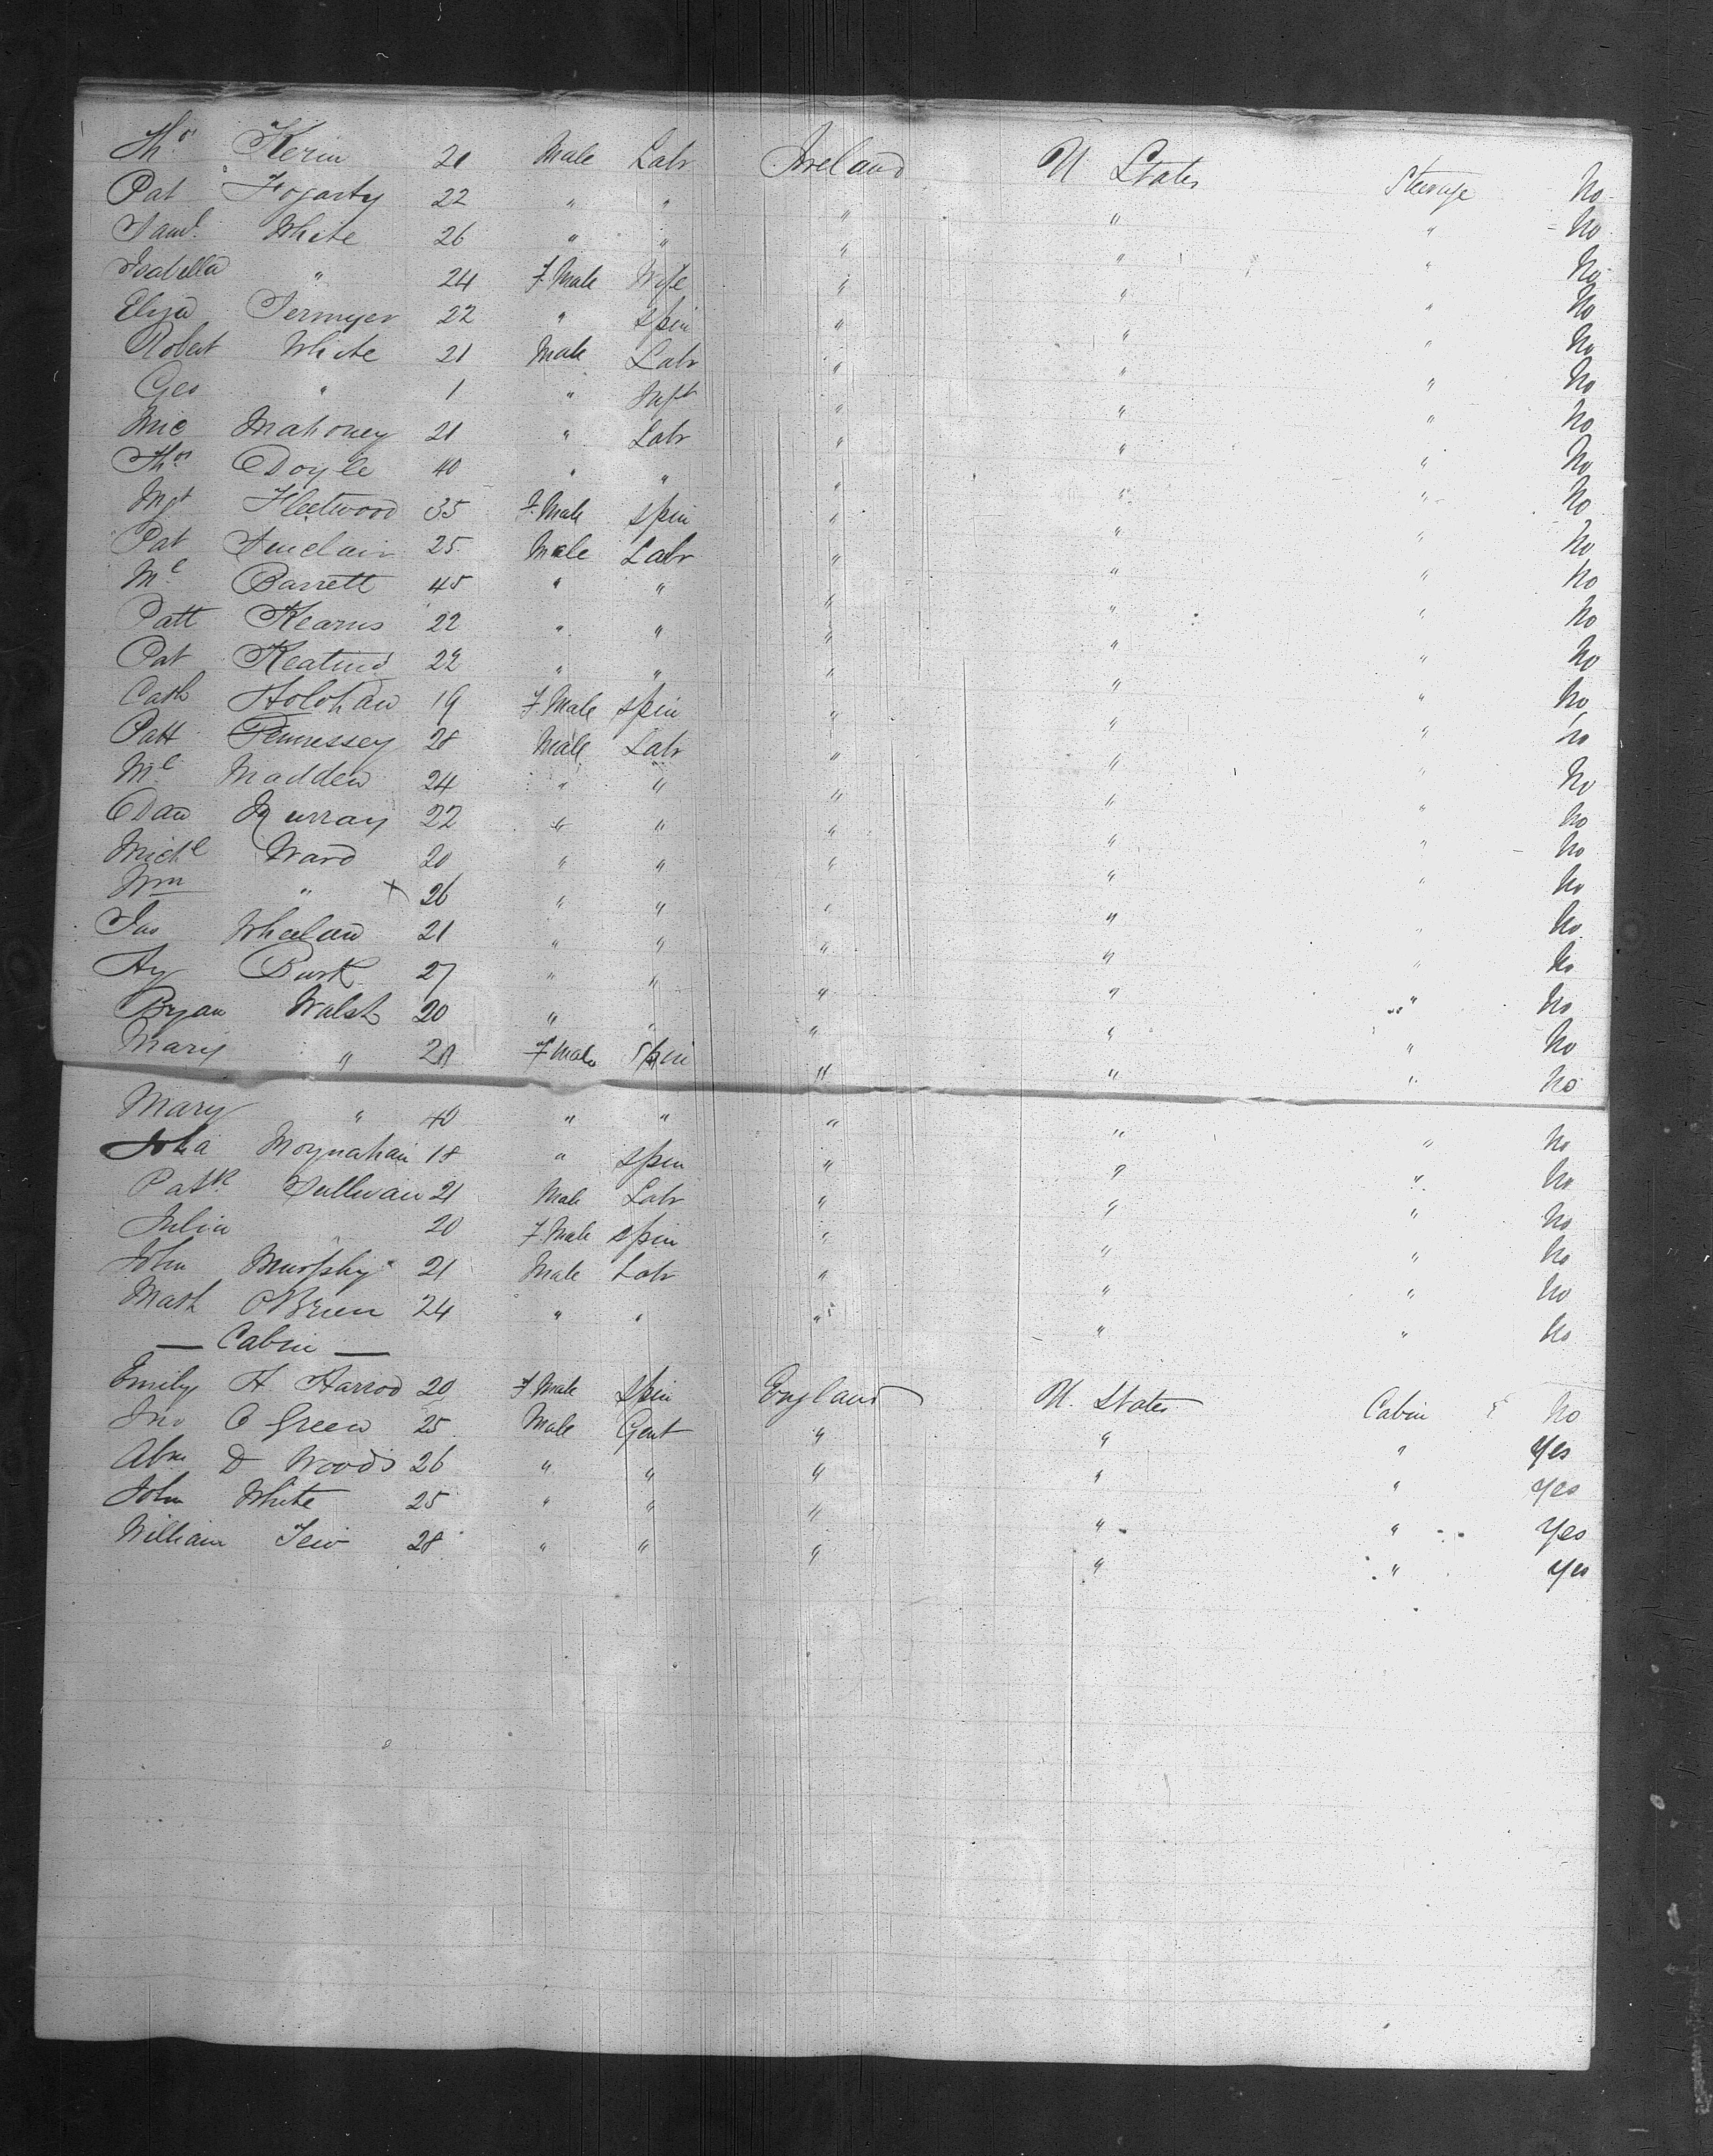 Thos Kerin 20 Male Labr Ireland U States Steerage No
Pat Fogarty 22 " " " " " No
Saml. White 26 " " " " " No
Isabella " 24 F. Male Wife " " " No
Eliza 22 " Spin " " " No
Robert White 21 Male Labr " " " No
Geo " 1 " Inft " " " No
Mic Mahoney 21 " Labr " " " No
Thos Doyle 40 " " " " " No
Mgt Fleetwood 35 F. Male Spin " " " No
Pat Sinclair 25 Male Labr " " " No
Ml Barrett 45 " " " " " No
Patt Kearns 22 " " " " " No
Pat 22 " " " " " No
Cath Holohan 19 F Male Spin " " " No
Patt 28 Male Labr " " " No
Ml Madden 24 " " " " " No
Dan Murray 22 " " " " " No
Michl Ward 20 " " " " " No
Wm " x 26 " " " " " No
Jas Whelan 21 " " " " " No
Burk 27 " " " " " No
Bryan Walsh 20 " " " " " No
Mary " 20 F Male Spin " " " No
Mary " 40 " " " " " No
Moynahan 18 " Spin " " " No
Patk Sullivan 21 Male Labr " " " No
Julia 20 F Male Spin " " " No
John Murphy 21 Male Labr " " " No
Math OBrien 24 " " " " " No
— Cabin —
Emily H. Harrod 20 F Male Spin England U. States Cabin No
Jno C Green 25 Male Gent " " " Yes
Abm D Woods 26 " " " " " Yes
John White 25 " " " " " Yes
William Tew 28 " " " " " Yes